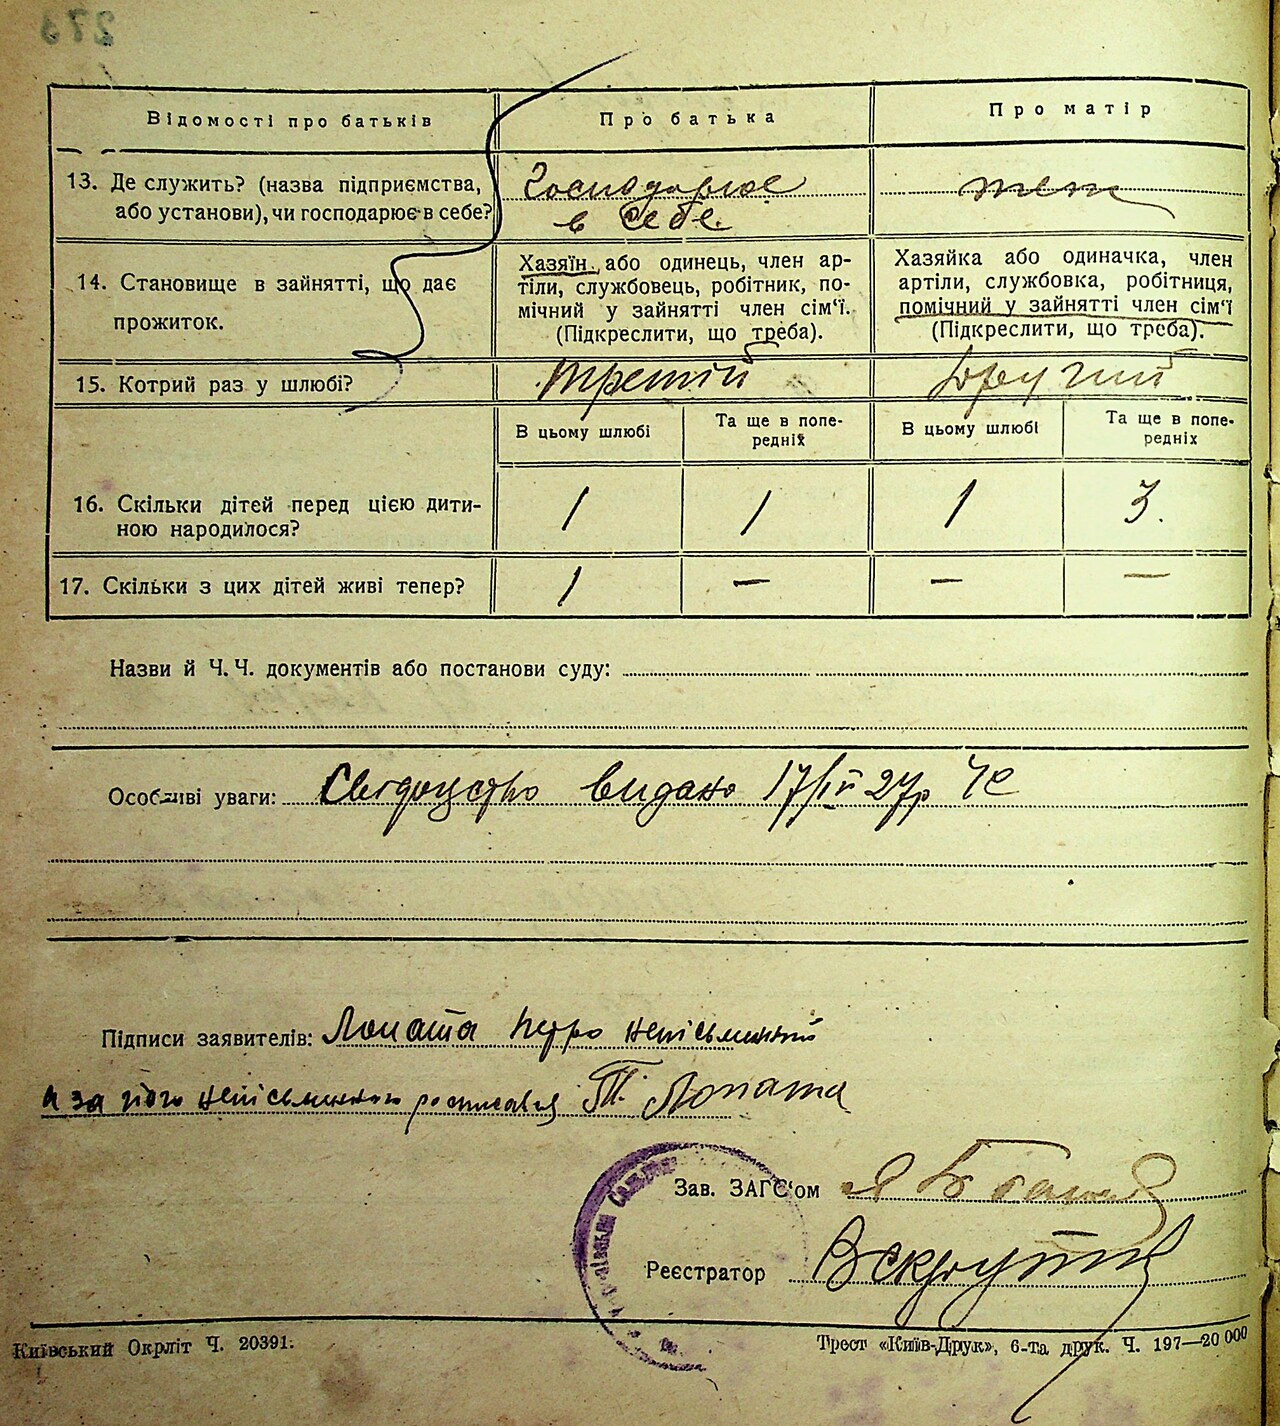 273
Відомості про батьків
Про батька
Про матір
13. Де служить? (назва підприємства,
або установи), чи господарює в себе?
Господарює
в себе
теж
14. Становище в зайнятті, що дає
прожиток.
Хазяїн, або одинець, член ар-
тіли, службовець, робітник, по-
мічний у зайнятті член сім'ї.
(Підкреслити, що треба).
Хазяйка або одиначка, член
артіли, службовка, робітниця,
помічний у зайнятті член сім'ї
(Підкреслити, що треба).
15. Котрий раз у шлюбі?
третій
другий
В цьому шлюбі
Та ще в попе-
редніх
В цьому шлюбі
Та ще в попе-
редніх
16. Скільки дітей перед цією дити-
ною народилося?
1
1
1
3.
17. Скільки з цих дітей живі тепер?
1
—
—
—
Назви й Ч. Ч. документів або постанови суду:
Особливі уваги: Свідоцтво видано 17/IV 27р
Підписи заявителів: Лопата Петро непісьминний
а за його непісьминного росписався П. Лопата
Зав. ЗАГС'ом
Реєстратор
Київський Окрліт Ч. 20391.
Трест «Київ-Друк», 6-та друк. Ч. 197—20 000